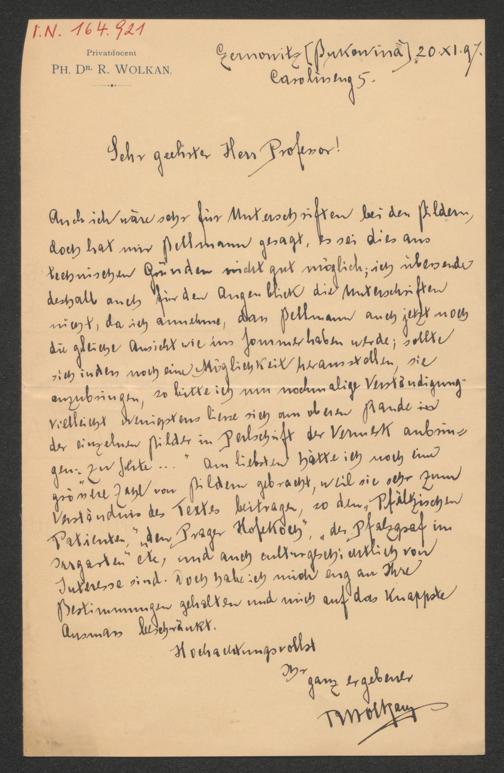 I.N. 164.921
Privatdocent
PH. DR. R. WOLKAN.
Czernowitz (Bukowina), 20.XI.97.
Carolineng 5.
Sehr geehrter Herr Professor!
Auch ich wäre sehr für Unterschriften bei den Bildern,
doch hat mir Bellmann gesagt, es sei dies aus
technischen Gründen nicht gut möglich; ich übersende
deshalb auch für den Augenblick die Unterschriften
nicht, da ich annehme, dass Bellmann auch jetzt noch
die gleiche Ansicht wie im Sommer haben werde; sollte
sich indess noch eine Möglichkeit herausstellen, sie
anzubringen, so bitte ich um nochmalige Verständigung.
Vielleicht wenigstens liesse sich am oberen Rande in
der einzelnen Bilder in Perlschrift der Vermerk anbrin=
gen: "zu Seite ..." Am liebsten hätte ich noch eine
grössere Zahl von Bildern gebracht, weil sie sehr zum
Verständnis des Textes beitragen, so den "Pfälzischen
Patienten", "den Prager Hofekoch", "der Pfalzgraf im
Irrgarten" etc, und auch culturgeschichtlich von
Interesse sind. Doch habe ich mich eng an Ihre
Bestimmungen gehalten und mich auf das knappste
Ausmass beschränkt.
Hochachtungsvollst
Ihr
ganz ergebener
RWolkan